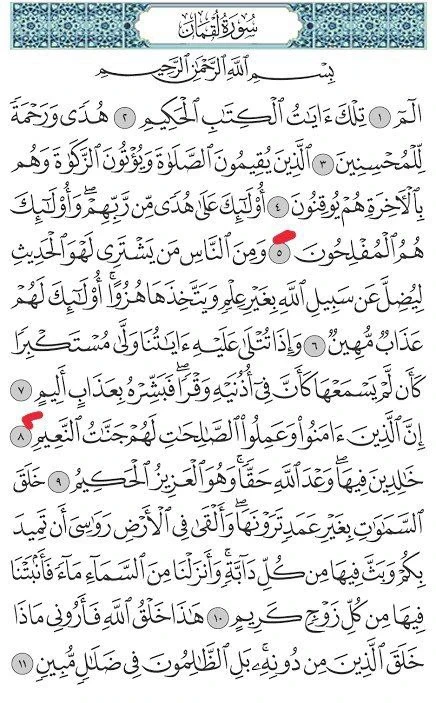 سُورَةُ لُقْمَانَ
بِسْمِ ٱللَّهِ ٱلرَّحْمَٰنِ ٱلرَّحِيمِ
الٓمٓ ١ تِلْكَ ءَايَٰتُ ٱلْكِتَٰبِ ٱلْحَكِيمِ ٢ هُدًى وَرَحْمَةً
لِّلْمُحْسِنِينَ ٣ ٱلَّذِينَ يُقِيمُونَ ٱلصَّلَوٰةَ وَيُؤْتُونَ ٱلزَّكَوٰةَ وَهُم
بِٱلْأَخِرَةِ هُمْ يُوقِنُونَ ٤ أُوْلَٰٓئِكَ عَلَىٰ هُدًى مِّن رَّبِّهِمْ ۖ وَأُوْلَٰٓئِكَ
هُمُ ٱلْمُفْلِحُونَ ٥ وَمِنَ ٱلنَّاسِ مَن يَشْتَرِى لَهْوَ ٱلْحَدِيثِ
لِيُضِلَّ عَن سَبِيلِ ٱللَّهِ بِغَيْرِ عِلْمٍ وَيَتَّخِذَهَا هُزُوًا ۚ أُوْلَٰٓئِكَ لَهُمْ
عَذَابٌ مُّهِينٌ ٦ وَإِذَا تُتْلَىٰ عَلَيْهِ ءَايَٰتُنَا وَلَّىٰ مُسْتَكْبِرًا
كَأَن لَّمْ يَسْمَعْهَا كَأَنَّ فِىٓ أُذُنَيْهِ وَقْرًا ۖ فَبَشِّرْهُ بِعَذَابٍ أَلِيمٍ ٧
إِنَّ ٱلَّذِينَ ءَامَنُوا۟ وَعَمِلُوا۟ ٱلصَّٰلِحَٰتِ لَهُمْ جَنَّٰتُ ٱلنَّعِيمِ ٨
خَٰلِدِينَ فِيهَا ۖ وَعْدَ ٱللَّهِ حَقًّا ۚ وَهُوَ ٱلْعَزِيزُ ٱلْحَكِيمُ ٩ خَلَقَ
ٱلسَّمَٰوَٰتِ بِغَيْرِ عَمَدٍ تَرَوْنَهَا ۖ وَأَلْقَىٰ فِى ٱلْأَرْضِ رَوَٰسِىَ أَن تَمِيدَ
بِكُمْ وَبَثَّ فِيهَا مِن كُلِّ دَآبَّةٍ ۚ وَأَنزَلْنَا مِنَ ٱلسَّمَآءِ مَآءً فَأَنۢبَتْنَا
فِيهَا مِن كُلِّ زَوْجٍ كَرِيمٍ ١٠ هَٰذَا خَلْقُ ٱللَّهِ فَأَرُونِى مَاذَا
خَلَقَ ٱلَّذِينَ مِن دُونِهِۦ ۚ بَلِ ٱلظَّٰلِمُونَ فِى ضَلَٰلٍ مُّبِينٍ ١١